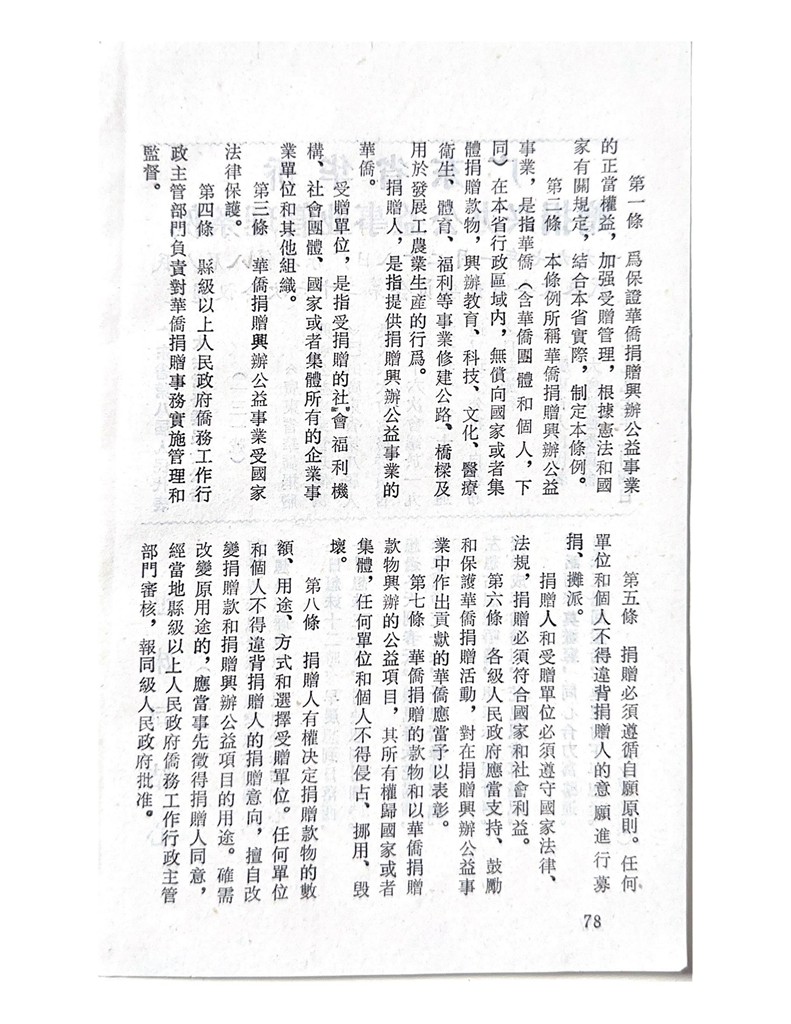 第一條　爲保證華僑捐贈興辦公益事業
的正當權益，加强受贈管理，根據憲法和國
家有關規定，結合本省實際，制定本條例。
第二條　本條例所稱華僑捐贈興辦公益
事業，是指華僑（含華僑團體和個人，下
同）在本省行政區域内，無償向國家或者集
體捐贈款物，興辦教育、科技、文化、醫療
衛生、體育、福利等事業修建公路、橋樑及
用於發展工農業生産的行爲。
捐贈人，是指提供捐贈興辦公益事業的
華僑。
受贈單位，是指受捐贈的社會福利機
構、社會團體、國家或者集體所有的企業事
業單位和其他組織。
第三條　華僑捐贈興辦公益事業受國家
法律保護。
第四條　縣級以上人民政府僑務工作行
政主管部門負責對華僑捐贈事務實施管理和
監督。
第五條　捐贈必須遵循自願原則。任何
單位和個人不得違背捐贈人的意願進行募
捐、攤派。
捐贈人和受贈單位必須遵守國家法律、
法規，捐贈必須符合國家和社會利益。
第六條　各級人民政府應當支持、鼓勵
和保護華僑捐贈活動，對在捐贈興辦公益事
業中作出貢獻的華僑應當予以表彰。
第七條　華僑捐贈的款物和以華僑捐贈
款物興辦的公益項目，其所有權歸國家或者
集體，任何單位和個人不得侵占、挪用、毁
壞。
第八條　捐贈人有權决定捐贈款物的數
額、用途、方式和選擇受贈單位。任何單位
和個人不得違背捐贈人的捐贈意向，擅自改
變捐贈款和捐贈興辦公益項目的用途。確需
改變原用途的，應當事先徵得捐贈人同意，
經當地縣級以上人民政府僑務工作行政主管
部門審核，報同級人民政府批准。
78